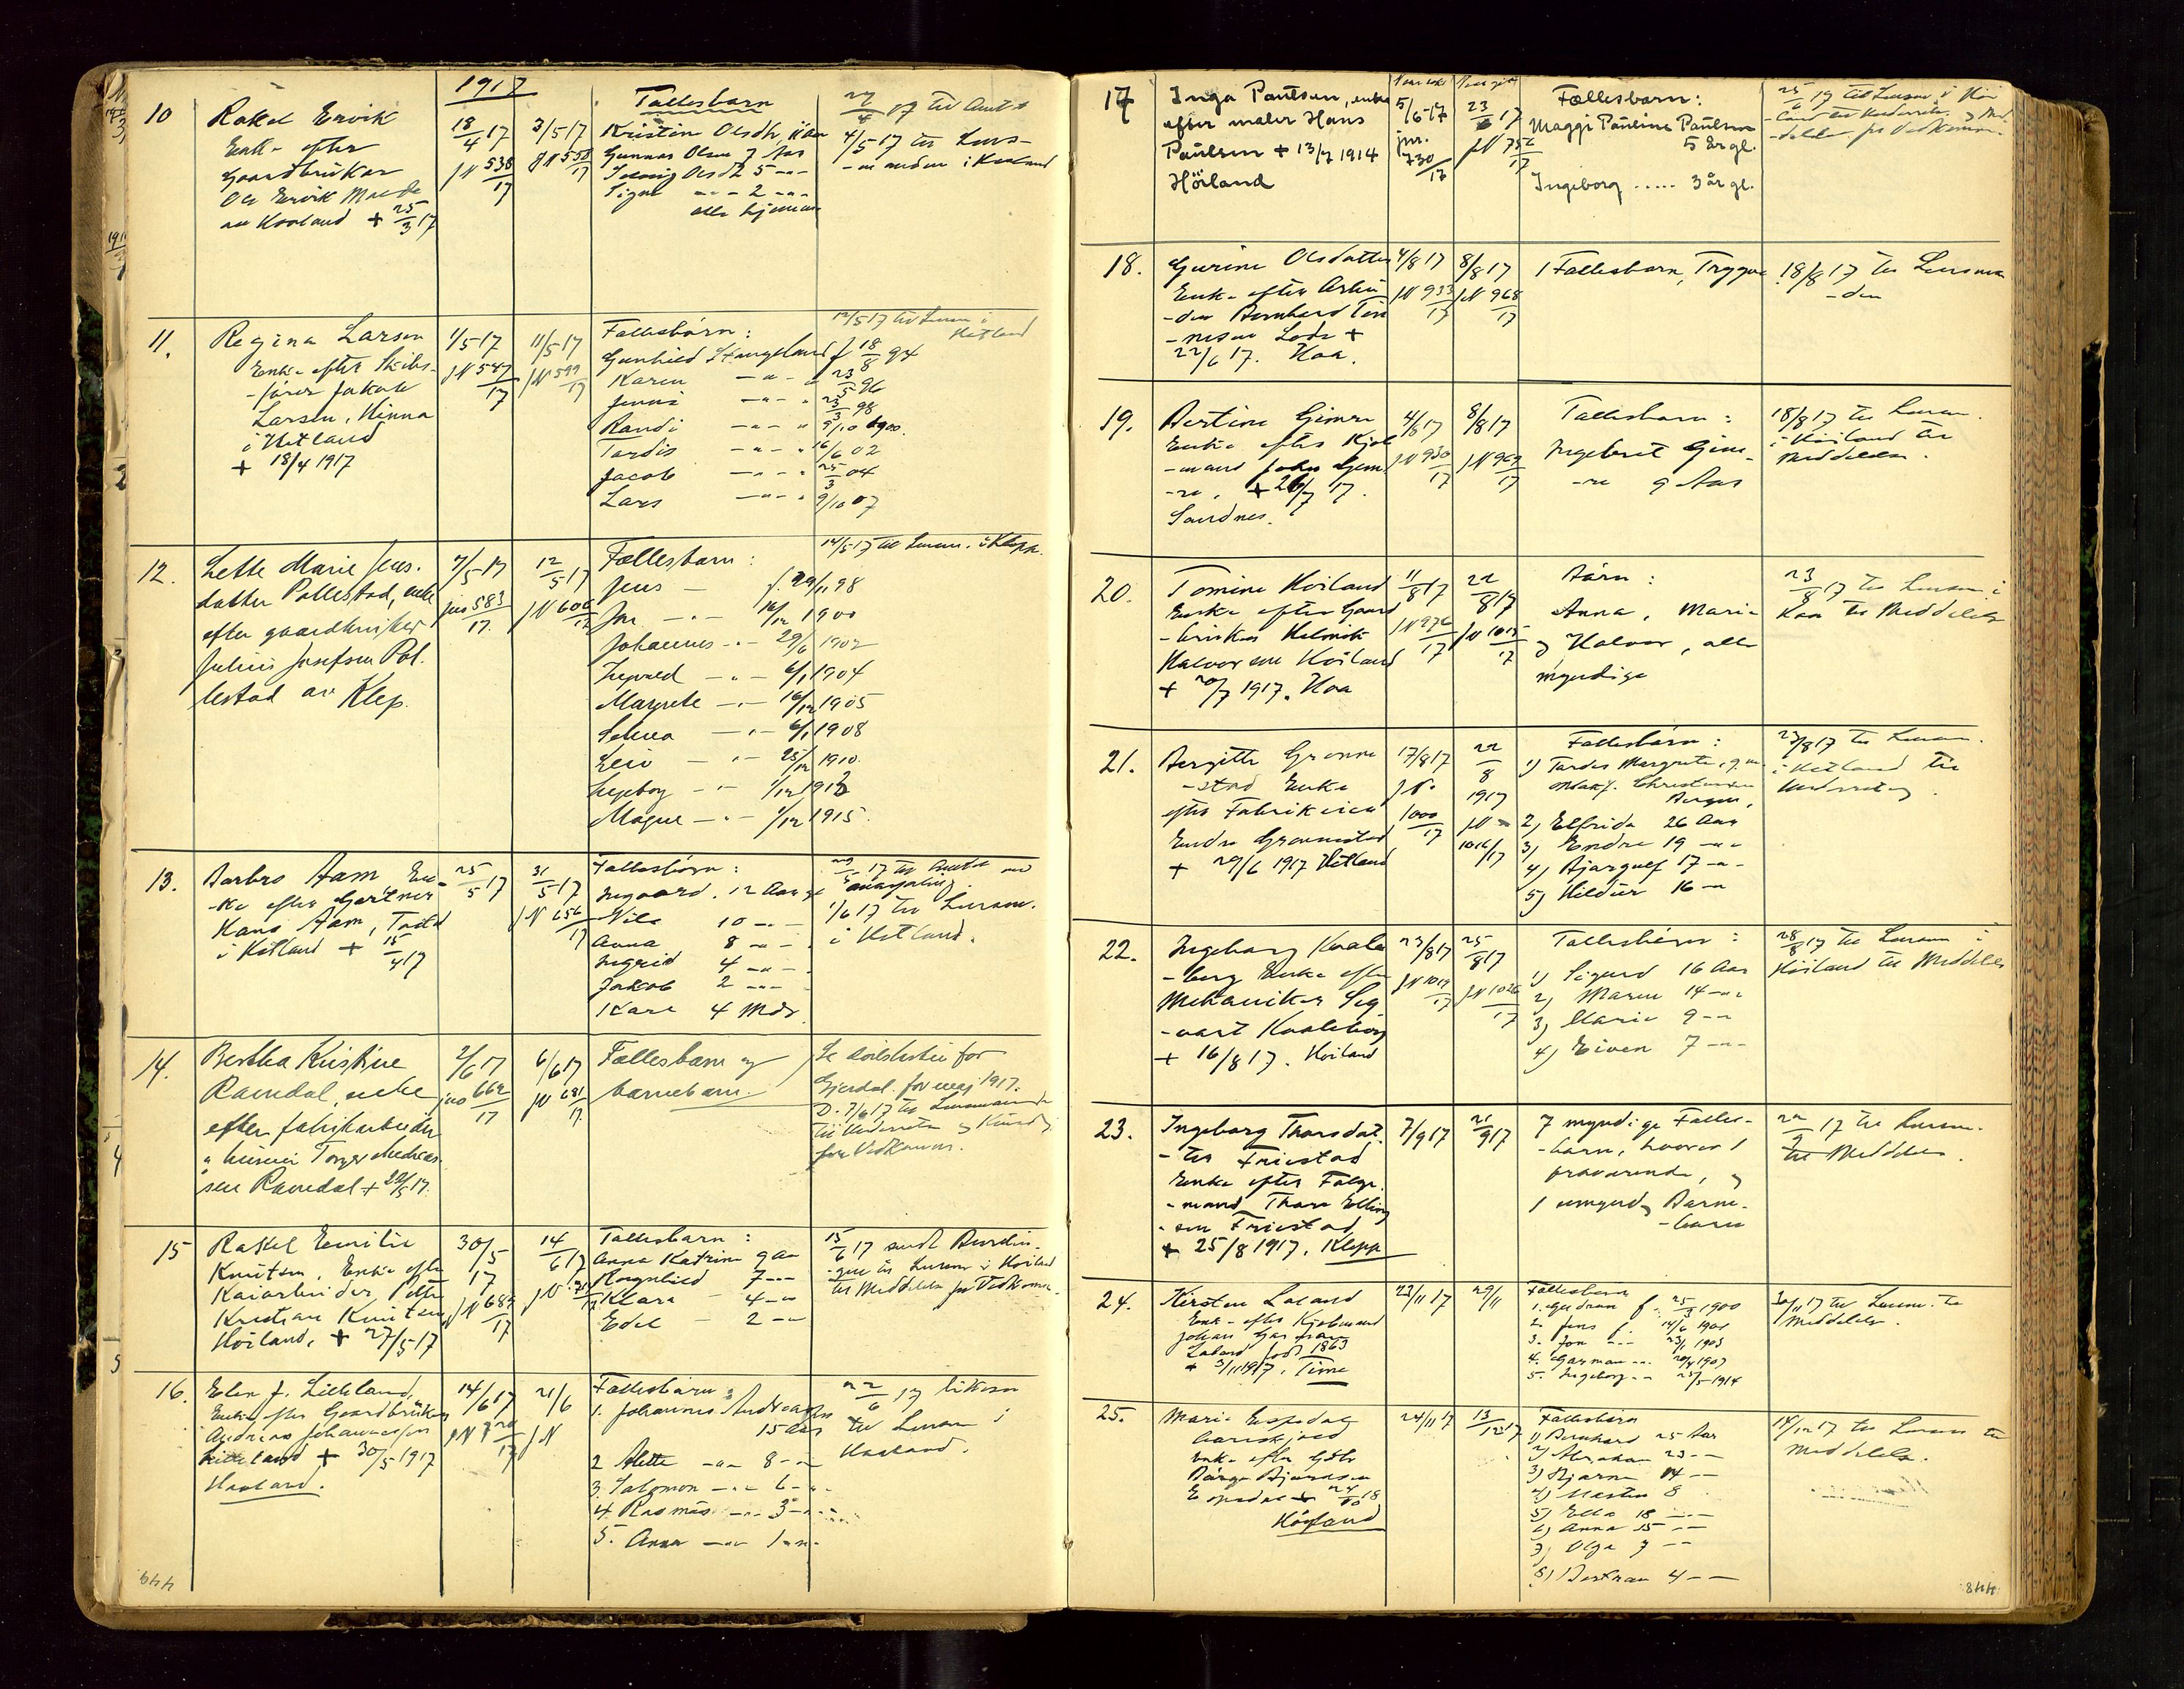 1917
10
Rakel Ervik
Enke efter
Gaardbruker
Ole Ervik
av Haaland + 25/3 17
18/4 17
JN 538/17
3/5 17
JN 558/17
Fællesbarn
Kristin Olsdtr,
Gunnar Olsen 7 Aar
Solveig Olsdtr 5 -"-
Signe -"- 2 -"-
alle hjemme
27/4 17 til Amts
4/5 17 til Lens-
-manden i Haaland
11.
Regina Larsen
Enke efter Skibs-
-fører Jakob
Larsen, Hinna
i Hetland
+ 18/4 1917
1/5 17
JN 547/17
11/5 17
JN 599/17
Fællesbørn:
Gunhild Stangeland f 18/8 94
Karen -"- " 23/5 96
Jenni -"- " 23/3 98
Randi -"- " 9/10 1900.
Tordis -"- " 16/6 02
Jacob -"- " 25/3 04
Lars -"- " 9/10 07
12/5 17 til Lensm i
Hetland
12.
Lette Marie Jens.
datter Pollestad, enke
efter gaardbruker
Julius Josefsen Pol.
lestad av Klep.
7/5 17
jno 583/17.
12/5 17
JN 606/17
Fællesbarn:
Jens - f. 29/11 98
Jon -"- 16/12 1900
Johannes -"- 29/6 1902
Ingvald -"- 6/1 1904
Margrete -"- 16/12 1905
Selma -"- 6/1 1908
Leiv -"- 25/12 1910.
Ingeborg -"- 1/12 1913
Magne -"- 1/12 1915.
14/5 17 til Lensm. i Klepp.
13.
Barbro Aam En-
-ke efter Gartner
Hans Aam, Tasta
i Hetland + 15/4 17
25/5 17
31/5 17
JN 656/17
Fællesbørn:
Ingvard. 12 Aar
Nils 10 -"-
Anna 8 -"-
Ingrid 4 -"-
Jakob 2 -"-
Kare 4 Mdr.
29/5 17 til Amtet
1/6 17 til Lensm.
i Hetland.
14.
Bertha Kristine
Ravndal, enke
efter fabrikarbeider
Torger Andreas-
sen Ravndal + 28/5 17.
2/6 17
jno 662/17
6/6 17
JN 681/17.
Fællesbarn og
barnebarn.
Se dødsliste for
Gjesdal for maj 1917.
D. 7/6 17 til Lensmanden
til Underretn og
for Vedkomm.
15
Rakel Emilie
Knutsen. Enke efter
Kaiarbeider, Peter
Kristian Knutsen
Höiland, + 27/5 17
30/5 17
JN 684/17
14/6 17
Fællesbarn:
Anna Katrine 9 Aar
Ragnhild 7 -"-
Klara - 4 -"-
Edel - 2 -"-
15/6 17 sendt
til Lensm i Höiland
til Meddelelse for Vedkomm.
16.
Elen J. Lilleland,
Enke efter Gaardbruker
Andreas Johannessen
Lilleland + 30/5 1917
Haaland.
14/6 17
21/6
JN
Fællesbørn:
1. Johannes Andreassen
15 Aar
2 Alette -"- 8 -"-
3. Salomon -"- 6 -"-
4. Rasmus -"- 3 -"-
5. Anna -"- 1 -"-
22/6 17
til Lensm i
Haaland.
449
17
Inga Paulsen, enke
efter maler Hans
Paulsen + 13/7 1914
Höiland
5/6-17
jnr.
730/17
23/6 17
JN 756/17
Fællesbarn:
Maggi Pauline Paulsen
5 år gl.
Ingeborg ..... 3 år gl.
25/6 17 til Lensm i Höi
18.
Gurine Olsdatter
Enke efter Arbei
-der Bernhard Tön
-nesen Lode +
22/6 17. Haa.
4/8 17
JN 933/17
8/8 17
JN 968/17
1 Fællesbarn, Trygve
18/8 17 til Lensman
-den
19.
Bertine Gimre
Enke efter Kjøb
-mand John Gim
-re. + 26/7 17.
Sandnes.
4/8 17
JN 930/17
8/8 17
JN 969/17
Fællesbarn:
Ingebret Gim-
-re 9 Aar
18/8 17 til Lensm.
i Höiland til
Meddelelse.
20.
Tomine Höiland
Enke efter Gaard
-bruker Helmik
Halvorsen Höiland
+ 20/7 1917. Haa
11/8 17
JN 976/17
22/8 17
JN 1015/17
Børn:
Anna, Marie
og Halvor, alle
myndige
23/8 17 til Lensm i
Haa til Meddelelse
21.
Bergitte Grønne
-stad Enke
efter Fabrikeier
Endre Grønnestad
+ 29/6 1917 Hetland
17/8 17
JN.
1000/17
22/8
1917
JN
1016/17
Fællesbørn:
1) Tordis Margrete, g m
Christensen
Bergen.
2) Elfrida 26 Aar
3) Endre 19 -"-
4) Bjargulf 17 -"-
5) Hildur 16 -"
23/8 17 til Lensm.
i Hetland til
Underretning.
22.
Ingeborg Kvale
-berg Enke efter
Mekaniker Sig
-vart Kvaleberg
+ 16/8 17. Höiland
23/8 17
JN 1019/17
25/8 17
JN 1026/17
Fællesbørn:
1) Sigurd 16 Aar
2) Maren 14 -"-
3) Marie 9 -"-
4) Eiven 7 -"-
28/8 17 til Lensm i
Höiland til Meddelelse
23.
Ingeborg Thorsdat.
-ter Friestad
Enke efter Folge.
-mand Thore Elling
-sen Friestad
+ 25/8 1917. Klepp
7/9 17
21/9 17
7 myndige Fælles-
-barn, hvorav 1
fraværende, og
1 umyndig Barne-
-barn
22/9 17 til Lensm.
til Meddelelse.
24.
Kirsten Laland
Enke efter Kjøbmand
Johan Garman
Laland født 1863
+ 3/11 1917. Time
23/11 17
29/11
Fællesbørn
1. Gudrun f. 25/3 1900
2. Jens " 14/6 1901
3. Jon -"- 23/1 1903
4. Garman -"- 20/8 1907
5. Ingeborg -"- 25/5 1914
30/11 17 til Lensm. til
Meddelelse.
25.
Marie Espedal
enke efter
Børge Bjørnsen
Espedal
Høiland
24/11 17
13/12 17
Fællesbörn
1) Bernhard 25 Aar
2) Abraham 23 -"-
3) Bjarne 14 -"-
4) Martin 8
5) Ella 18 -"-
6) Anna 15 -"-
7) Olga 7 -"-
8) Bertran 4 -"-
14/12 17 til Lensm til
Meddelelse.
448